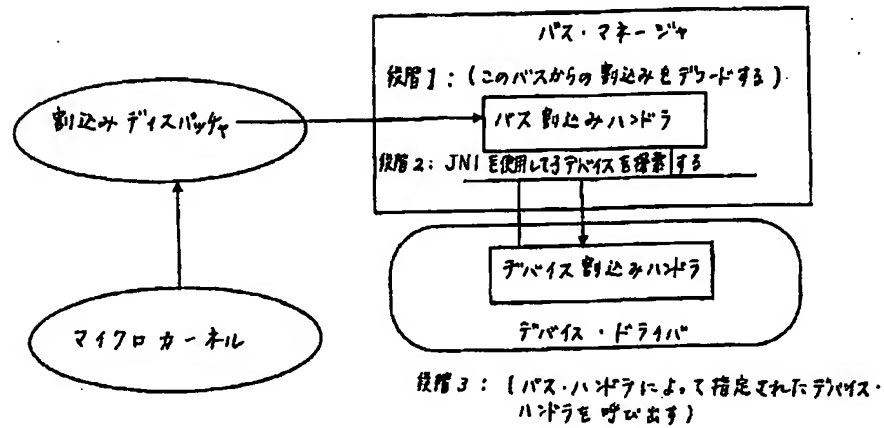 バス・マネージャ
段階1:(このバスからの割込みをデコードする)
割込みディスパッチャ
バス割込みハンドラ
段階2:JNIを使用して子デバイスを探索する
デバイス割込みハンドラ
マイクロカーネル
デバイス・ドライバ
段階3:(バス・ハンドラによって指定されたデバイス・
ハンドラを呼び出す)